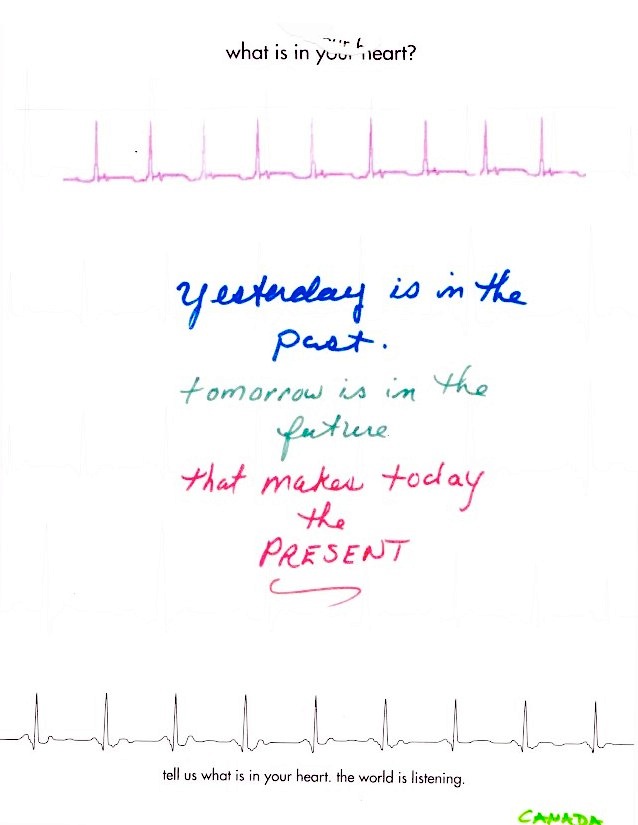 what is in your heart?
Yesterday is in the
past.
tomorrow is in the
future
that makes today
the
PRESENT
tell us what is in your heart. the world is listening.
CANADA